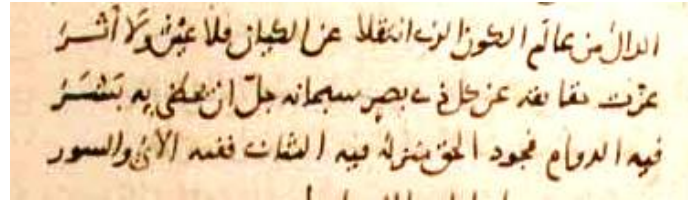 الدال من عالم الكون الذي انتقلا عن الكيان فلا عين ولا أثر
عزت حقايقه عن كل ذي بصر سبحانه جل ان يحظى به بشر
فيه الدوام فجود الحق منزله فيه الثبات ففيه الآي والسور